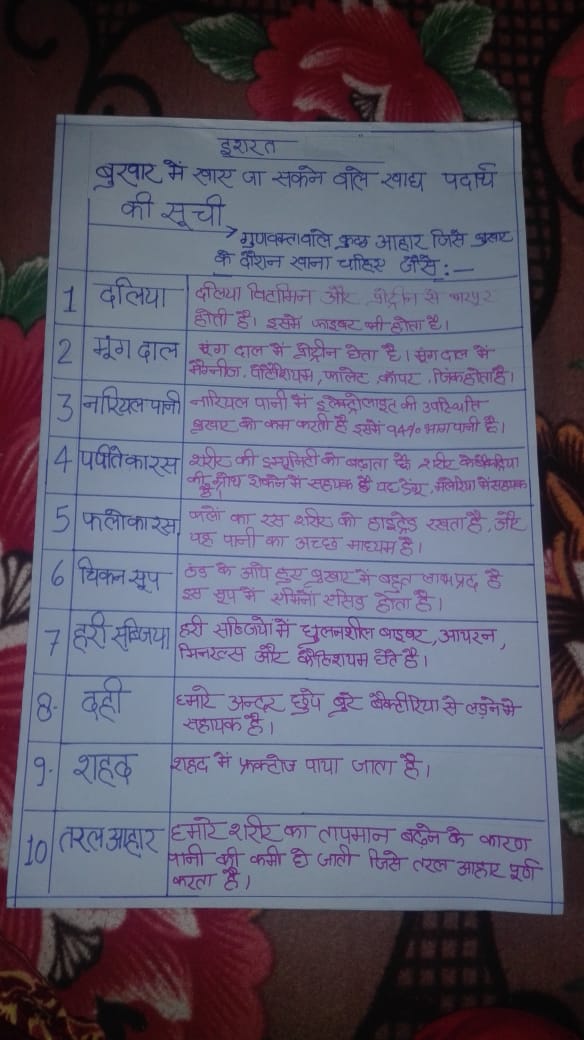 इशरत
बुखार में खाए जा सकने वाले खाद्य पदार्थ
की सूची
गुणवक्तावाले कुछ आहार जिसे बुखार
के दौरान खाना चाहिए जैसे :—
1 दलिया
दलिया विटामिन और प्रोट्रीन से भरपूर
होती है। इसमें फाइबर भी होता है।
2 मूंग दाल
मूंग दाल में प्रोट्रीन होता है। मूंग दाल में
मैग्नीज, पोटैशियम, फालेट, कॉपर, जिंक होता है।
3 नारियल पानी
नारियल पानी में इलेक्ट्रोलाइट की उपस्थिति
बुखार को कम करती है इसमें 94% भाग पानी है।
4 पपीते का रस
शरीर की इम्यूनिटी को बढ़ाता है शरीर के
की ग्रोथ रोकने में सहायक है यह डेंगू, मलेरिया में सहायक
है।
5 फलो का रस
फलों का रस शरीर को हाइड्रेड रखता है, और
यह पानी का अच्छा माध्यम है।
6 चिकन सूप
ठंड के साथ हुए बुखार में बहुत लाभप्रद है
इस सूप में एमिनो एसिड होता है।
7 हरी सब्जियां
हरी सब्जियों में घुलनशील फाइबर, आयरन,
मिनरल्स और कैल्शियम होते है।
8. दही
हमारे अन्दर छुपे बुरे बैक्टीरिया से लड़ने में
सहायक है।
9. शहद
शहद में फ्रक्टोज पाया जाता है।
10 तरल आहार
हमारे शरीर का तापमान बढ़ने के कारण
पानी की कमी हो जाती जिसे तरल आहार पूर्ण
करता है।